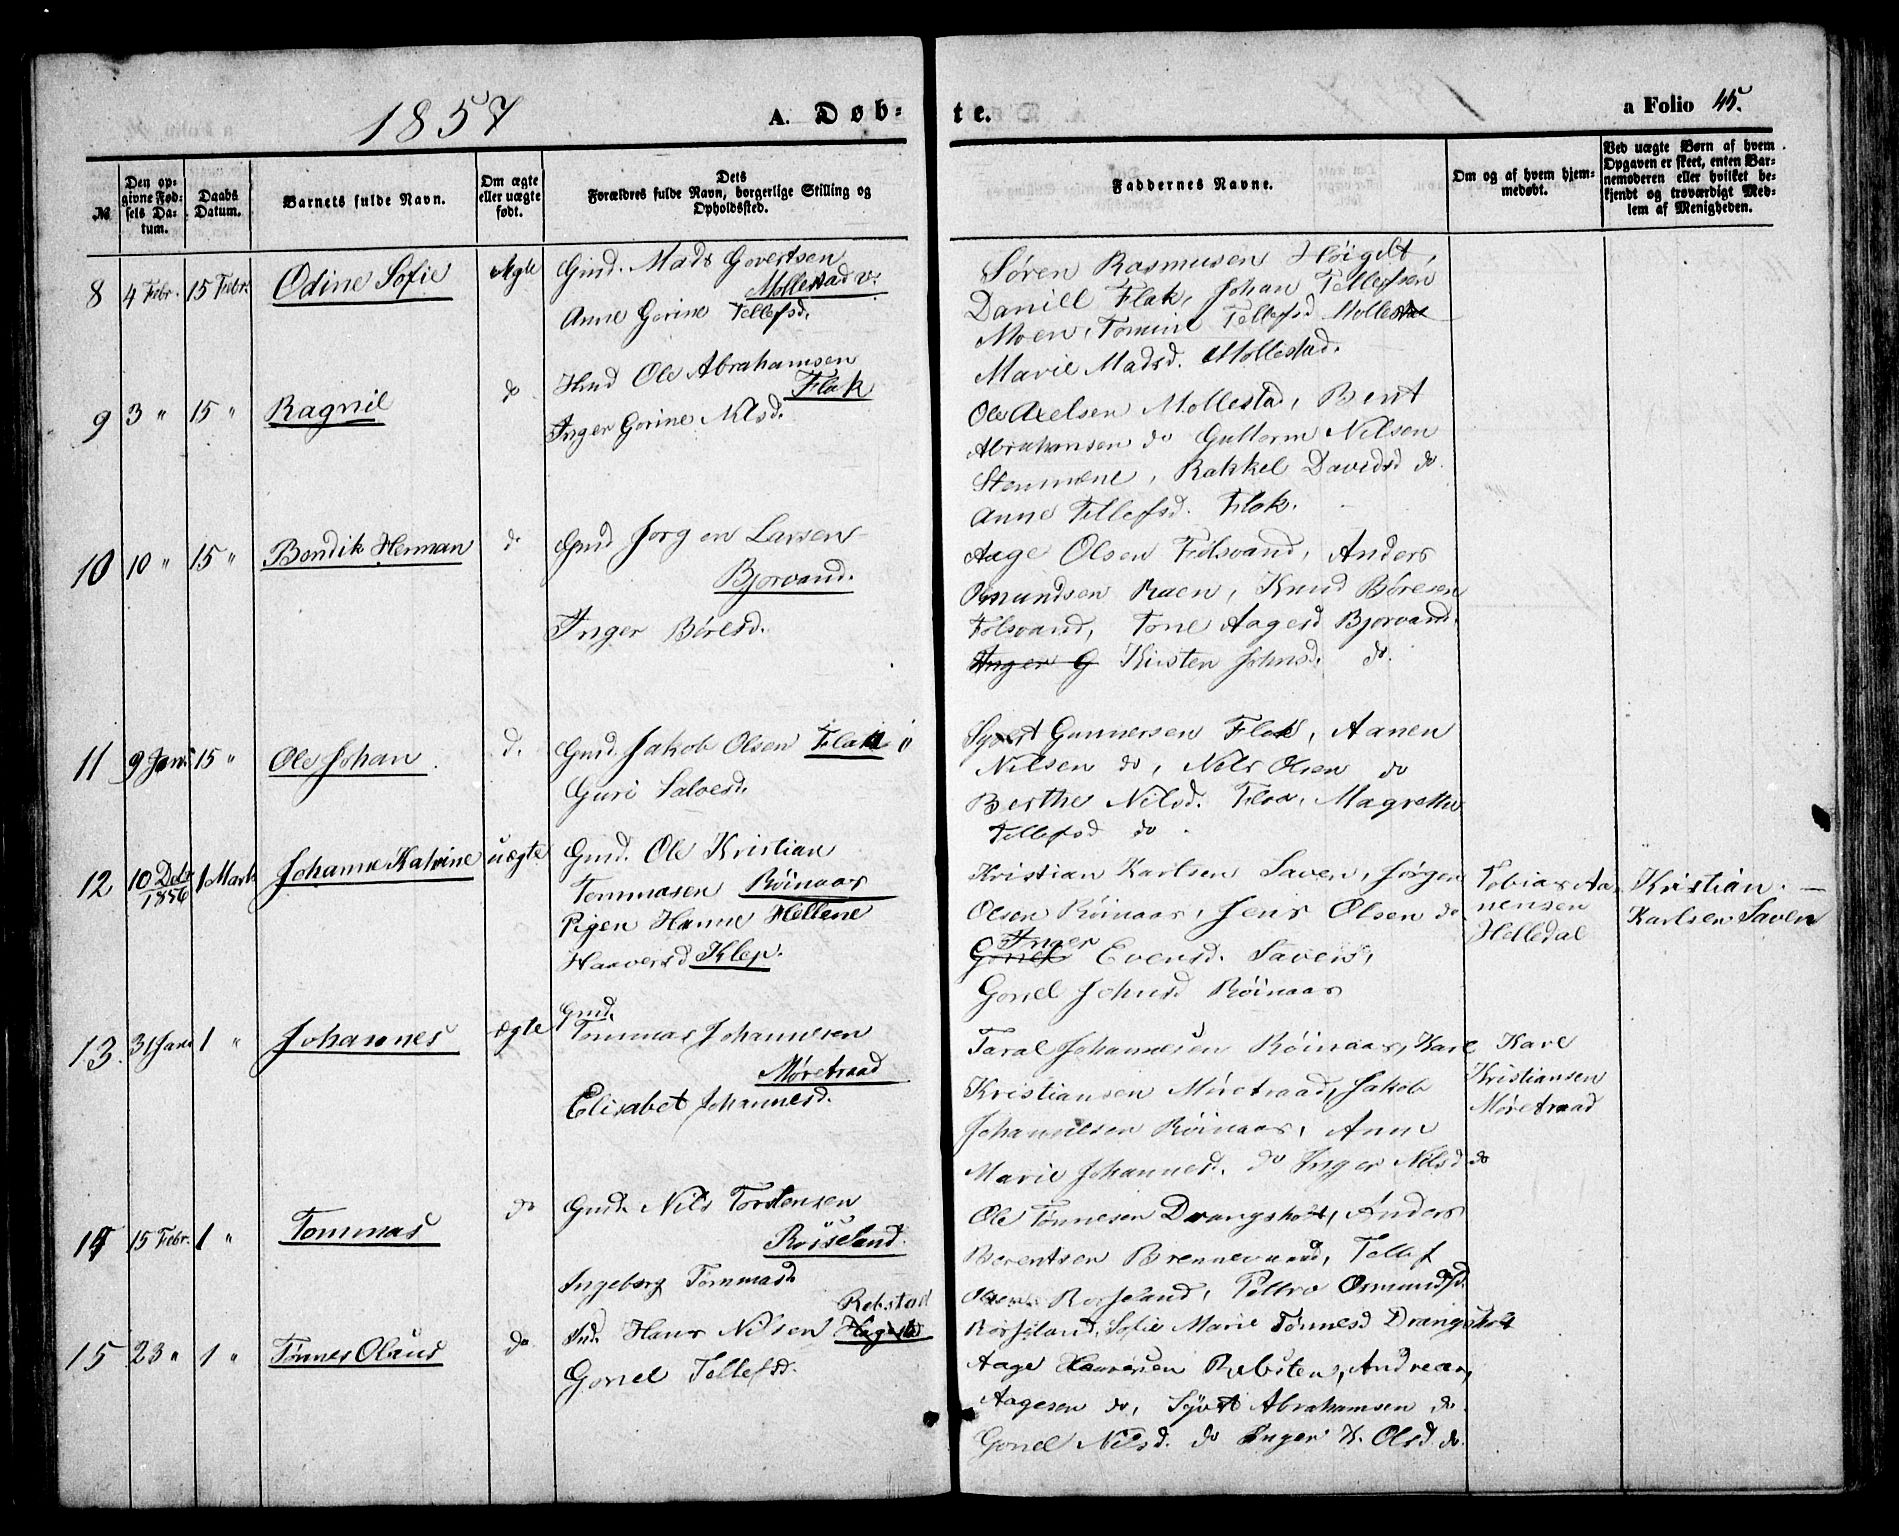 1857
A. Døb-
te.
a Folio 45.
№
Den op-
givne Fød-
sels Da-
tum.
Daabs
Datum.
Barnets fulde Navn.
Om ægte
eller uægte
født.
Dets
Forældres fulde Navn, borgerlige Stilling og
Opholdssted.
Faddernes Navne.
Om og af hvem hjem-
medøbt.
Ved uægte Børn af hvem
Opgaven er skeet, enten Bar-
nemoderen eller hvilket be-
kjendt og troværdigt Med-
lem af Menigheden.
8 4 Febr. 15 Febr. Odine Sofie Ægte
Gmd. Mads Govertsen
Mollestad v:
Anne Gorine Tellefsd.
Søren Rasmusen Høigelt,
Daniel Flak, Johan Tellefsen
Moen, Tomine Tellefsd Mollestad
Marie Madsd. Mollestad.
9 3 " 15 " Ragnil do
Hmd Ole Abrahamsen
Flak
Inger Gorine Nilsd.
Ole Axelsen Mollestad, Bent
Abrahamsen do Guttorm Nilsen
Stemmene, Rakkel Davidsd do
Anne Tellefsd. Flak.
10 10 " 15 " Bendik Herman do
Gmd Jorgen Larsen
Bjorvand.
Inger Børesd.
Aage Olsen Folsvand, Anders
Omundsen Raen, Knud Børesen
Folsvand, Tone Aagesd Bjorvand.
Inger G Kirsten Johnsd. do.
11 9 Jan. 15 " Ole Johan d.
Gmd. Jakob Olsen Flak
Guri Salvesd.
Syvert Gunnersen Flak, Aanen
Nilsen do, Nils Olsen do
Berthe Nilsd. Flak, Magrethe
Tellefsd do.
12 10 Dcbr 1856 1 Marts Johanne Katrine uægte
Gmd. Ole Kristian
Tommasen Røinaas
Pigen Hanne Hellene
Haaversd Klep.
Kristian Karlsen Saven, Jørgen
Olsen Røinaas, Jens Olsen do
Inger
Gonel Evensd. Saven,
Gonel Johnsd Røinaas
Tobias Aa-
nensen
Helledal
Kristian
Karlsen Saven
13. 31 Jan 1 " Johannes ægte
Gmd.
Tommas Johannesen
Møretraad
Elisabet Johannesd.
Taral Johannesen Røinaas, Karl
Kristiansen Møretraad, Jakob
Johannesen Røinaas, Anne
Marie Johannesd. do Inger Nilsd do
Karl
Kristiansen
Møretraad
14 15 Febr. 1 " Tommas do
Gmd. Nils Torstensen
Røiseland.
Ingeborg Tommasd.
Ole Tønnesen Drangsholt, Anders
Berentsen Brennevand, Tellef
Olsen Rosseland, Pettro Osmundsd.
Rosseland, Sofie Marie Tønnesd Drangsholt
15 23 " 1 " Tønnes Olaus do
Rebstad
Ind. Hans Nilsen
Gonel Tellefsd.
Aage Haaversen Rebsten, Andreas
Aagesen do, Syvert Abrahamsen do.
Gonel Nilsd. do Inger K. Olsd. do.